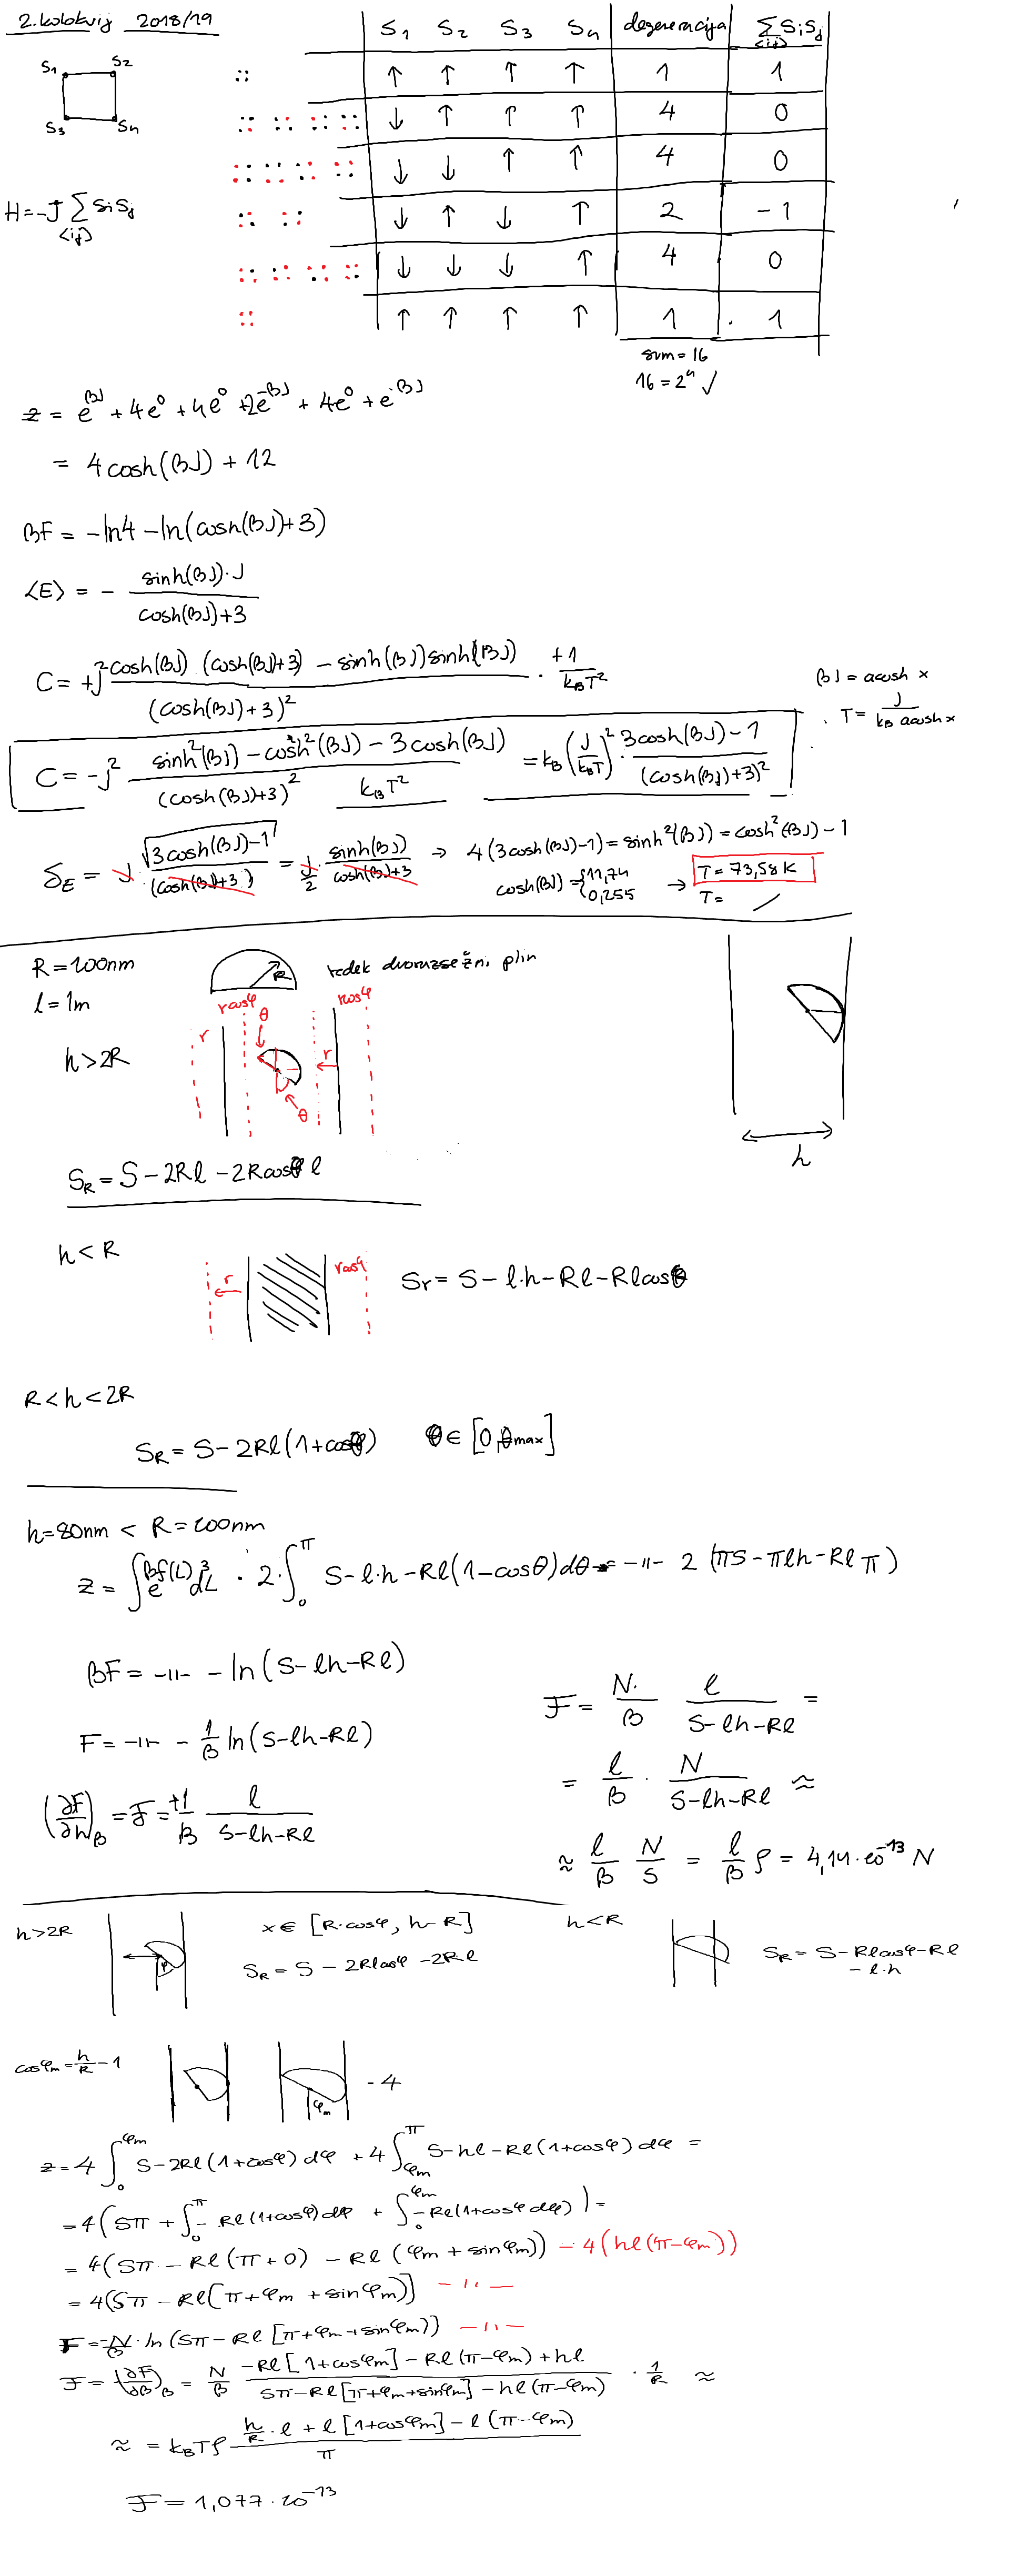 2. kolokvij 2018/19
S1 S2 S3 S4 degeneracija Σ<ij> SiSj
S1 S2
S3 S4
↑ ↑ ↑ ↑ 1 1
↓ ↑ ↑ ↑ 4 0
↓ ↓ ↑ ↑ 4 0
H = -J Σ<ij> SiSj
↓ ↑ ↓ ↑ 2 -1
↓ ↓ ↓ ↑ 4 0
↑ ↑ ↑ ↑ 1 1
sum = 16
16 = 2^4 ✓
z = e^βJ + 4e^0 + 4e^0 + 2e^-βJ + 4e^0 + e^βJ
= 4cosh(βJ) + 12
βF = -ln4 - ln(cosh(βJ)+3)
<E> = - sinh(βJ)·J / cosh(βJ)+3
C = +J² cosh(βJ)(cosh(βJ)+3) - sinh(βJ)sinh(βJ) / (cosh(βJ)+3)² · +1/kBT²
βJ = acosh x
T = J / kB acosh x
C = -J² sinh²(βJ) - cosh²(βJ) - 3cosh(βJ) / (cosh(βJ)+3)² kBT² = kB (J/kBT)² · 3cosh(βJ) - 1 / (cosh(βJ)+3)²
δE = J · √3cosh(βJ)-1 / (cosh(βJ)+3) = J/2 · sinh(βJ) / cosh(βJ)+3 → 4(3cosh(βJ)-1) = sinh²(βJ) = cosh²(βJ) - 1
cosh(βJ) = { 11,74 0,255 → T = 73,58 K
T = /
R = 100nm
l = 1m
R
redek dvorazsežni plin
rcosφ rcosφ
θ
r r
h > 2R
θ
h
SR = S - 2Rl - 2Rcosθ l
h < R
r rcosφ
Sr = S - l·h - Rl - Rlcosθ
R < h < 2R
SR = S - 2Rl(1+cosθ) θ ∈ [0, θmax]
h = 80nm < R = 100nm
z = ∫ e^βf(L) d³L · 2·∫0^π S - l·h - Rl(1-cosθ)dθ = -11- 2 (πS - πlh - Rl π)
βF = -11- - ln(S-lh-Rl)
F = -11- - 1/β ln(S-lh-Rl)
(∂F/∂h)β = F = +1/β l / S-lh-Rl
F = N·/β l / S-lh-Rl =
= l/β · N / S-lh-Rl ≈
≈ l/β N/S = l/β ρ = 4,14·10^-13 N
h > 2R
x ∈ [R·cosφ, h-R]
SR = S - 2Rlcosφ - 2Rl
h < R
SR = S - Rlcosφ - Rl
- l·h
cosφm = h/R - 1
φm
- 4
z = 4 ∫0^φm S - 2Rl(1+cosφ)dφ + 4 ∫φm^π S - hl - Rl(1+cosφ)dφ =
= 4(Sπ + ∫0^π - Rl(1+cosφ)dφ + ∫0^φm -Rl(1+cosφ dφ)) =
= 4(Sπ - Rl(π+0) - Rl(φm + sinφm)) - 4(hl(π-φm))
= 4(Sπ - Rl[π+φm+sinφm]) -11-
F = -N/β · ln(Sπ - Rl[π+φm+sinφm]) -11-
F = (∂F/∂β)β = N/β -Rl[1+cosφm] - Rl(π-φm) + hl / Sπ-Rl[π+φm+sinφm] - hl(π-φm) · 1/R ≈
≈ = kBTρ h/R · l + l[1+cosφm] - l(π-φm) / π
F = 1,077·10^-13